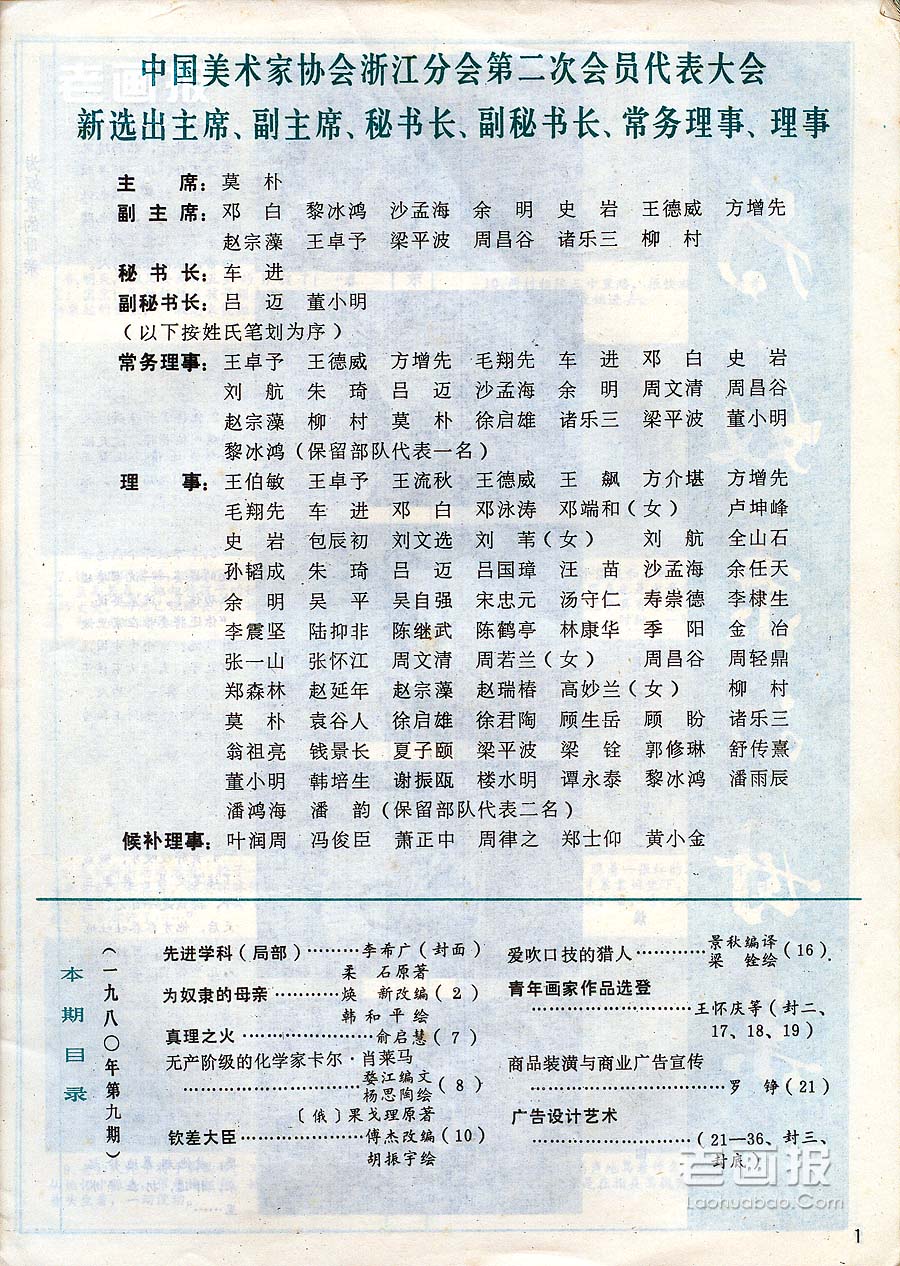 中国美术家协会浙江分会第二次会员代表大会
新选出主席、副主席、秘书长、副秘书长、常务理事、理事
主　　席：莫　朴
副 主 席：邓　白　黎冰鸿　沙孟海　余　明　史　岩　王德威　方增先
赵宗藻　王卓予　梁平波　周昌谷　诸乐三　柳　村
秘 书 长：车　进
副秘书长：吕　迈　董小明
（以下按姓氏笔划为序）
常务理事：王卓予　王德威　方增先　毛翔先　车　进　邓　白　史　岩
刘　航　朱　琦　吕　迈　沙孟海　余　明　周文清　周昌谷
赵宗藻　柳　村　莫　朴　徐启雄　诸乐三　梁平波　董小明
黎冰鸿（保留部队代表一名）
理　　事：王伯敏　王卓予　王流秋　王德威　王　飙　方介堪　方增先
毛翔先　车　进　邓　白　邓泳涛　邓端和（女）　卢坤峰
史　岩　包辰初　刘文选　刘　苇（女）　刘　航　全山石
孙韬成　朱　琦　吕　迈　吕国璋　汪　苗　沙孟海　余任天
余　明　吴　平　吴自强　宋忠元　汤守仁　寿崇德　李棣生
李震坚　陆抑非　陈继武　陈鹤亭　林康华　季　阳　金　冶
张一山　张怀江　周文清　周若兰（女）　周昌谷　周轻鼎
郑森林　赵延年　赵宗藻　赵瑞椿　高妙兰（女）　柳　村
莫　朴　袁谷人　徐启雄　徐君陶　顾生岳　顾　盼　诸乐三
翁祖亮　钱景长　夏子颐　梁平波　梁　铨　郭修琳　舒传熹
董小明　韩培生　谢振瓯　楼水明　谭永泰　黎冰鸿　潘雨辰
潘鸿海　潘　韵（保留部队代表二名）
候补理事：叶润周　冯俊臣　萧正中　周律之　郑士仰　黄小金
本期目录
（一九八〇年第九期）
先进学科（局部）………李希广（封面）
柔　石原著
为奴隶的母亲…………焕　新改编（2）
韩和平绘
真理之火………………俞启慧（7）
无产阶级的化学家卡尔·肖莱马
……………………婺江编文
杨思陶绘（8）
〔俄〕果戈理原著
钦差大臣………………傅杰改编（10）
胡振宇绘
爱吹口技的猎人…………景秋编译
梁　铨绘（16）
青年画家作品选登
…………………王怀庆等（封二、
17、18、19）
商品装潢与商业广告宣传
……………………罗　铮（21）
广告设计艺术
…………………（21—36、封三、
封底）
老画报
老画报
Laohuabao.com
1